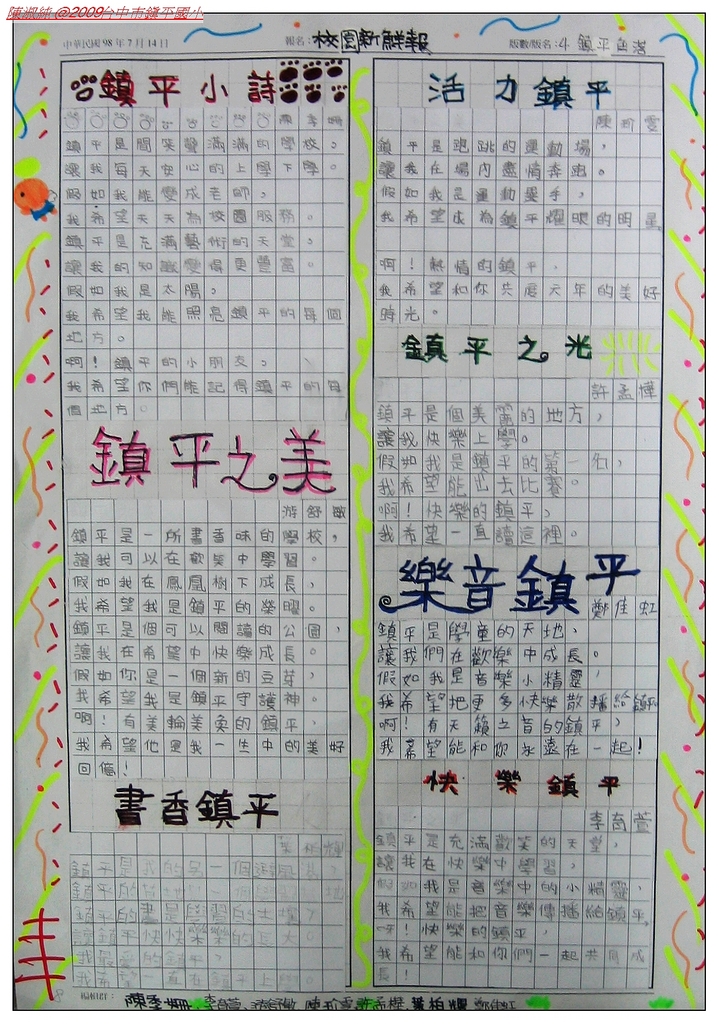 陳淑純 @2009台中市鎮平國小
中華民國 98 年 7 月 14 日
報名：校園新鮮報
版數/版名：4 鎮平角落
鎮平小詩
鎮平是間笑聲滿滿的學校，
讓我每天安心的上學下學。
假如我能變成老師，
我希望天天為校園服務。
鎮平是充滿藝術的天堂，
讓我的知識變得更豐富。
假如我是太陽，
我希望我能照亮鎮平的每個
地方。
啊！鎮平的小朋友。
我希望你們能記得鎮平的每
個地方。
鎮平之美
游舒敏
鎮平是一所書香味的學校，
讓我可以在歡笑中學習。
假如我在鳳凰樹下成長，
我希望我是鎮平的榮曜。
鎮平是個可以閱讀的公園，
讓我在希望中快樂成長。
假如你是一個新的豆芽，
我希望我是鎮平守護神。
啊！有美輪美奐的鎮平，
我希望他是我一生中的美好
回億！
書香鎮平
葉柏輝
活力鎮平
陳祈雲
鎮平是跑跳的運動場，
讓我在場內盡情奔跑。
假如我是運動選手，
我希望成為鎮平耀眼的明星。
啊！熱情的鎮平，
我希望和你共度六年的美好
時光。
鎮平之光
許孟樺
鎮平是個美麗的地方，
讓我快樂上學。
假如我是鎮平的第一名，
我希望能出去比賽。
啊！快樂的鎮平，
我希望一直讀這裡。
樂音鎮平
鄭佳虹
鎮平是學童的天地，
讓我們在歡樂中成長。
假如我是音樂小精靈，
我希望把更多快樂散播給鎮平
啊！有天籟之音的鎮平，
我希望能和你永遠在一起！
快樂鎮平
李育萱
鎮平是充滿歡笑的天堂，
讓我在快樂中學習，
假如我是音樂中的小精靈，
我希望能把音樂傳播給鎮平，
呀！快樂的鎮平，
我希望能和你們一起共同成
長！